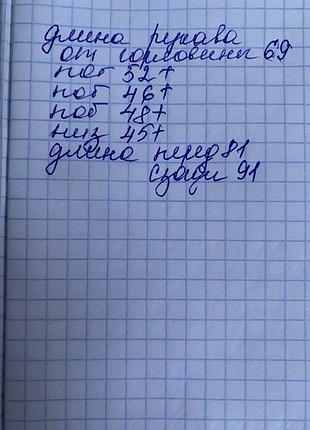 длина рукава
от горловины 69
пог 52+
поб 46+
поб 48+
низ 45+
длина перед 81
сзади 91